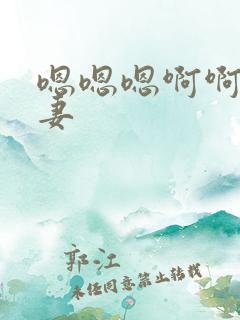 嗯嗯嗯啊啊
妻
郭江
未经同意禁止转载